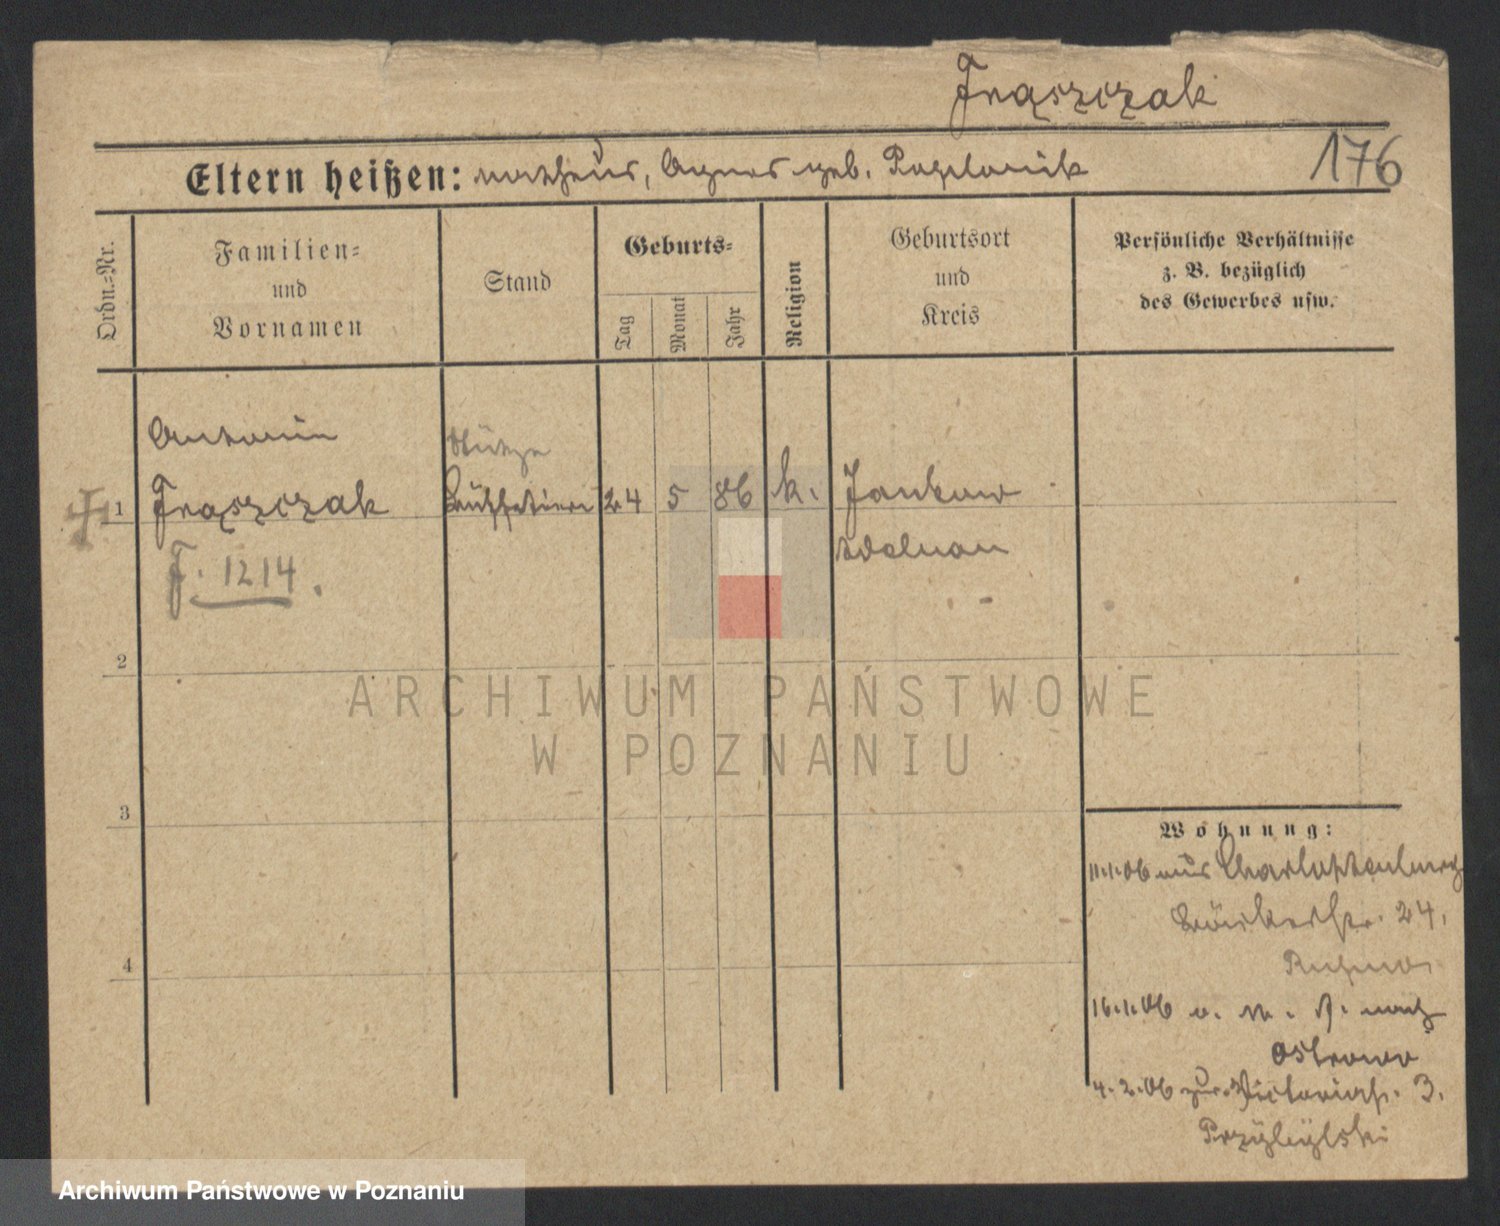 Frąszczak
Eltern heißen: Matheus, Agnes geb. Paplonik
176
Ordn.-Nr.
Familien-
und
Vornamen
Stand
Geburts-
Tag
Monat
Jahr
Religion
Geburtsort
und
Kreis
Persönliche Verhältnisse
z. B. bezüglich
des Gewerbes usw.
Antonin
Stütze
1 Frąszczak Büffetiere 24 5 86 k. Jankow
Adelnau
F. 1214.
2
ARCHIWUM PAŃSTWOWE
W POZNANIU
3
Wohnung:
11.1.06 aus Charlottenburg
Bäckerstr. 24.
4
16.1.06 v. M. A. nach
Ostrowo
4.2.06 zur. Victoriastr. 3.
Przybylski
Archiwum Państwowe w Poznaniu